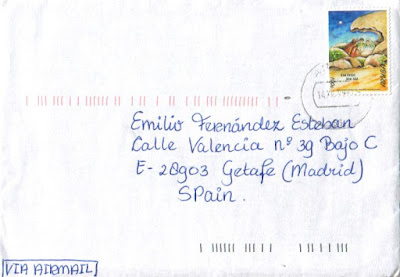 Emilio Fernández Esteban
Calle Valencia nº 39 Bajo C
E- 28903 Getafe (Madrid)
SPain.
VIA AIRMAIL